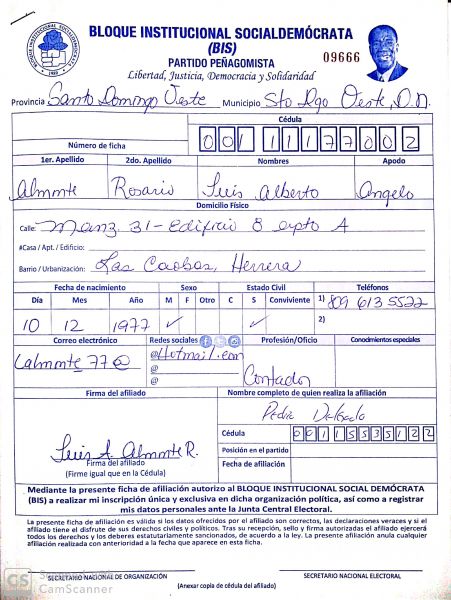 BLOQUE INSTITUCIONAL SOCIALDEMÓCRATA
(BIS)
PARTIDO PEÑAGOMISTA
09666
Libertad, Justicia, Democracia y Solidaridad
Provincia Santo Domingo Oeste Municipio Sto Dgo Oeste, D.N.
Cédula
Número de ficha 001 11177002
1er. Apellido 2do. Apellido Nombres Apodo
Almonte Rosario Luis Alberto Angelo
Domicilio Físico
Calle: Manz. 31 - Edificio 8 apto A
#Casa / Apt. / Edificio:
Barrio / Urbanización: Las Caobas, Herrera
Fecha de nacimiento Sexo Estado Civil Teléfonos
Día Mes Año M F Otro C S Conviviente 1) 809 613 5522
10 12 1977 ✓ ✓ 2)
Correo electrónico Redes sociales Profesión/Oficio Conocimientos especiales
Lalmonte 77@ @Hotmail.com
@
@ Contador
Firma del afiliado Nombre completo de quien realiza la afiliación
Pedro Delgado
Cédula 00115535122
Luis A. Almonte R. Posición en el partido
Firma del afiliado
(Firme igual que en la Cédula) Fecha de afiliación
Mediante la presente ficha de afiliación autorizo al BLOQUE INSTITUCIONAL SOCIAL DEMÓCRATA
(BIS) a realizar mi inscripción única y exclusiva en dicha organización política, así como a registrar
mis datos personales ante la Junta Central Electoral.
La presente ficha de afiliación es válida si los datos ofrecidos por el afiliado son correctos, las declaraciones veraces y si el
afiliado tiene el disfrute de sus derechos civiles y políticos. Tras su recepción, sello y firma autorizadas el afiliado ejercerá
todos los derechos y los deberes estatutariamente sancionados, de acuerdo a la ley. La presente afiliación anula cualquier
afiliación realizada con anterioridad a la fecha que aparece en esta ficha.
SECRETARIO NACIONAL DE ORGANIZACIÓN SECRETARIO NACIONAL ELECTORAL
(Anexar copia de cédula del afiliado)
CS
CamScanner